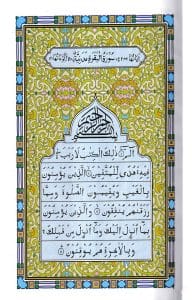 سُوْرَةُ الْبَقَرَةِ مَدَنِيَّةٌ
بِسْمِ اللهِ الرَّحْمٰنِ الرَّحِيْمِ
الٓمّٓ ذٰلِكَ الْكِتٰبُ لَا رَيْبَ
فِيْهِ هُدًى لِّلْمُتَّقِيْنَ الَّذِيْنَ يُؤْمِنُوْنَ
بِالْغَيْبِ وَيُقِيْمُوْنَ الصَّلٰوةَ وَمِمَّا
رَزَقْنٰهُمْ يُنْفِقُوْنَ وَالَّذِيْنَ يُؤْمِنُوْنَ
بِمَآ اُنْزِلَ اِلَيْكَ وَمَآ اُنْزِلَ مِنْ قَبْلِكَ
وَبِالْاٰخِرَةِ هُمْ يُوْقِنُوْنَ